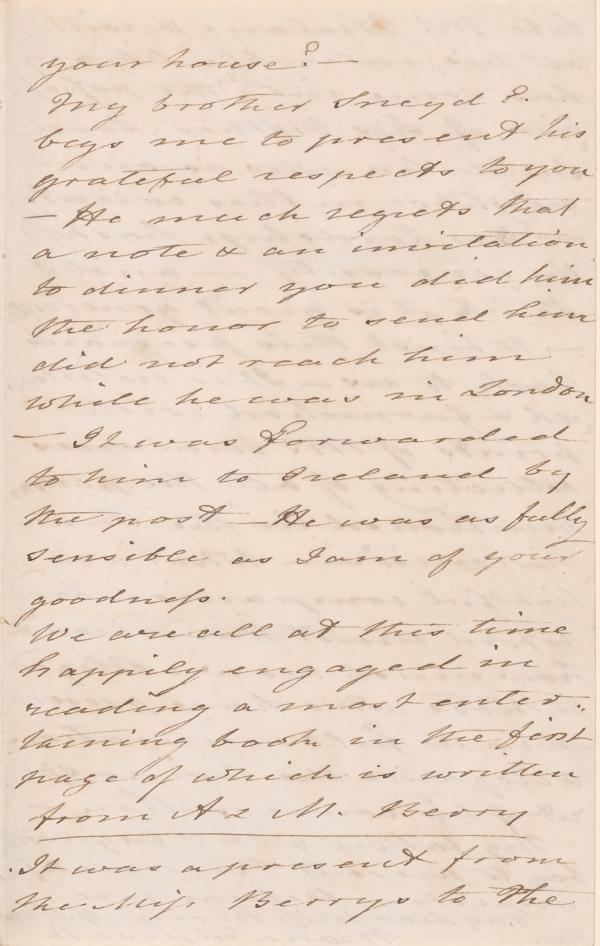 your house? —
My brother Sneyd E.
begs me to present his
grateful respects to you
— He much regrets that
a note & an invitation
to dinner you did him
the honor to send him
did not reach him
while he was in London
— It was forwarded
to him to Ireland by
the post — He was as fully
sensible as I am of your
goodness.
We are all at this time
happily engaged in
reading a most enter-
taining book in the first
page of which is written
from A & M. Berry
It was a present from
the Miss Berrys to the